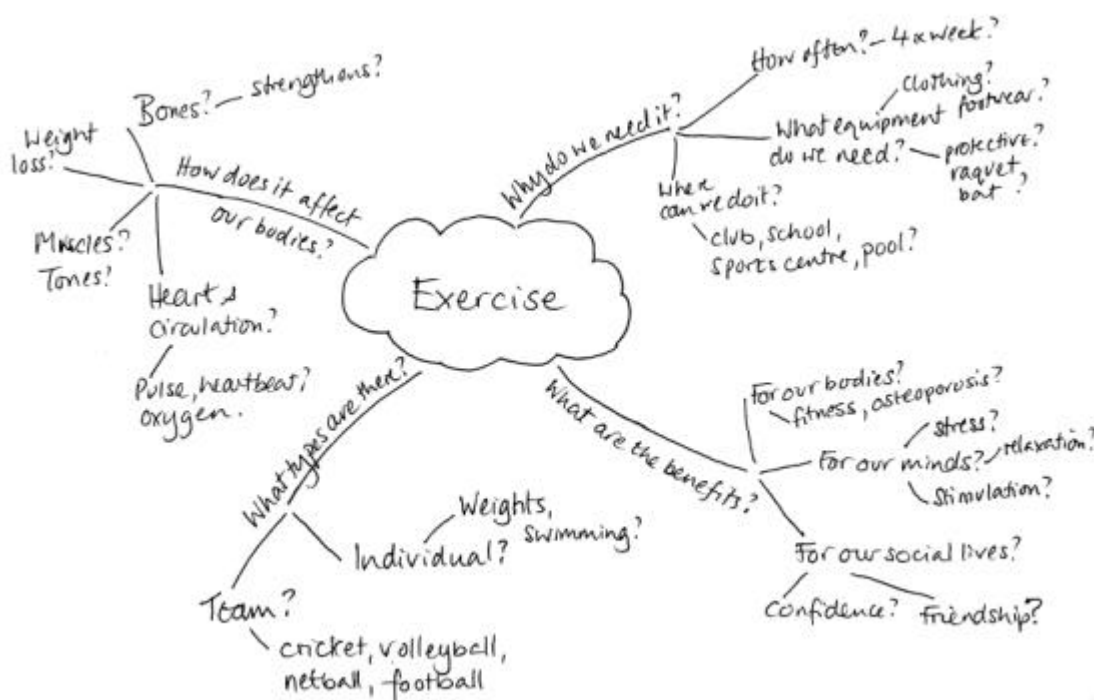 Exercise
How does it affect
our bodies?
Bones? strengthens?
Weight
loss?
Muscles?
Tones?
Heart &
circulation?
Pulse, heartbeat?
oxygen.
Why do we need it?
How often? - 4 x week?
What equipment
do we need?
clothing?
footwear?
protective?
raquet,
bat ?
where
can we do it?
club, school,
sports centre, pool?
What types are there?
Individual?
Weights,
swimming?
Team?
cricket, volleyball,
netball, football
What are the benefits?
For our bodies?
fitness, osteoporosis?
For our minds?
stress?
relaxation?
Stimulation?
For our social lives?
Confidence?
Friendship?